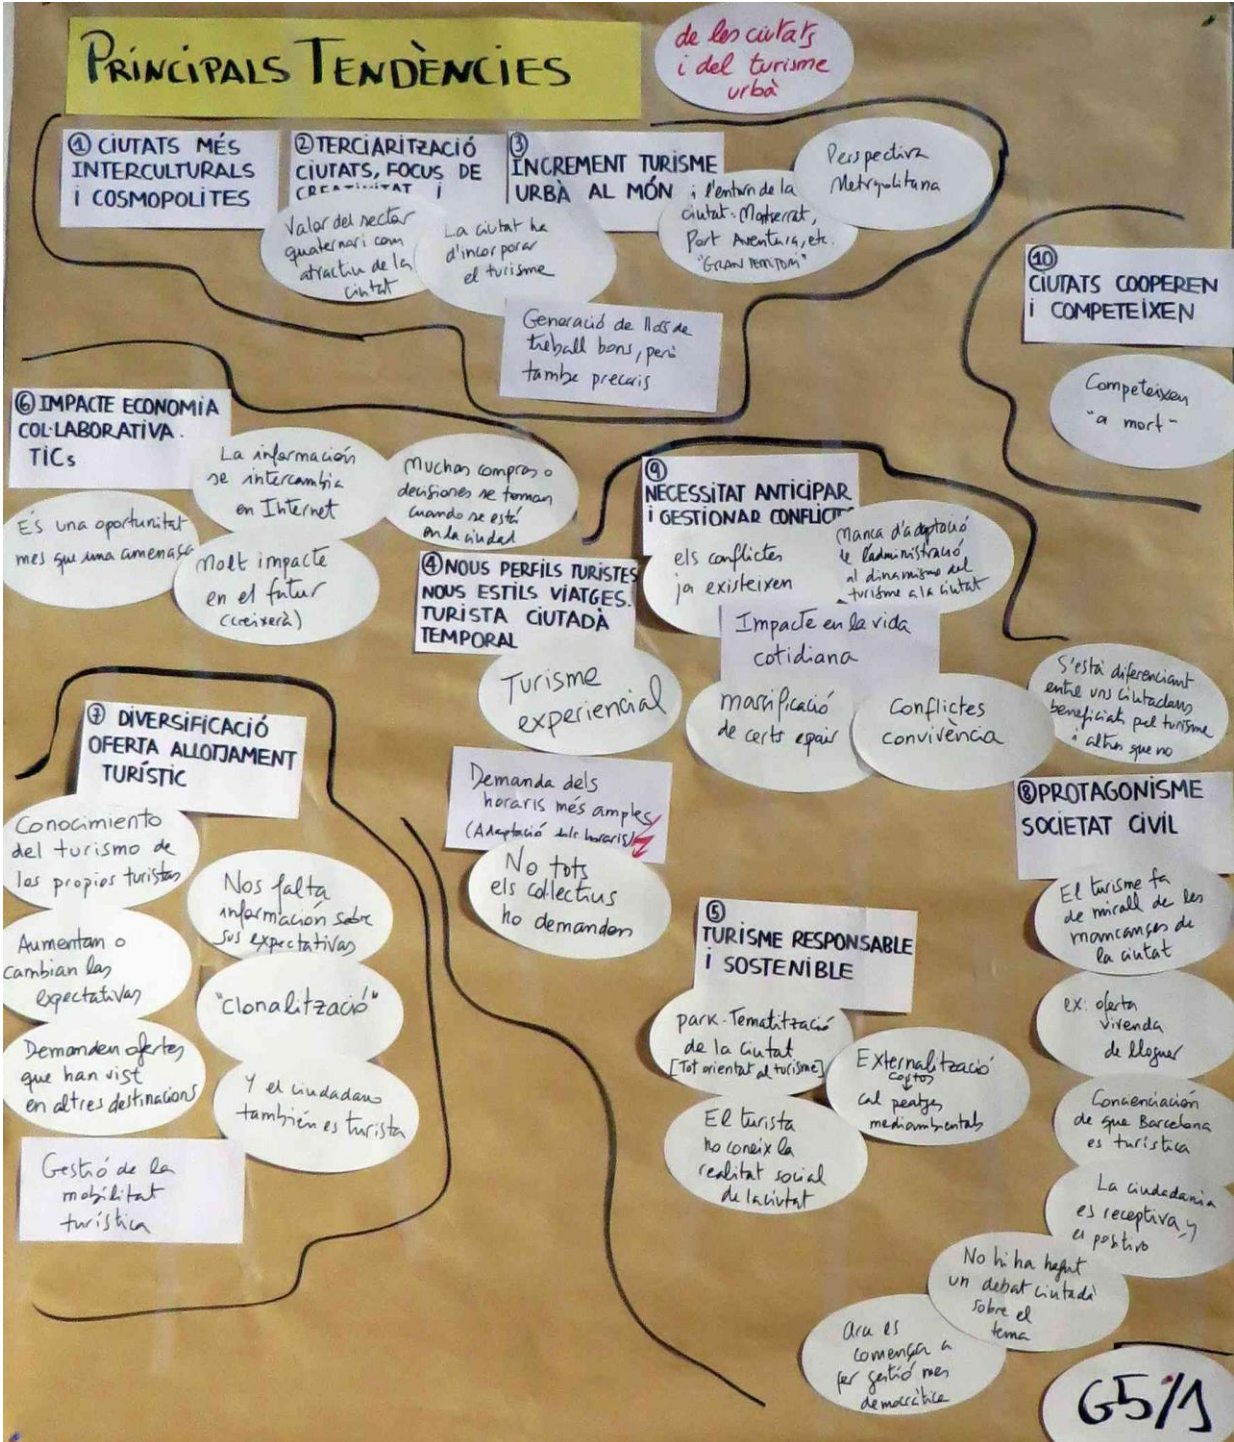 PRINCIPALS TENDÈNCIES
de les ciutats
i del turisme
urbà
① CIUTATS MÉS
INTERCULTURALS
i COSMOPOLITES
② TERCIARITZACIÓ
CIUTATS, FOCUS DE
i
Valor del sector
quaternari com
atractiu de la
ciutat
La ciutat ha
d'incorporar
el turisme
③
INCREMENT TURISME
URBÀ AL MÓN
i l'entorn de la
ciutat: Montserrat,
Port Aventura, etc.
Perspectiva
Metropolitana
Generació de llocs de
treball bons, però
també precaris
⑩
CIUTATS COOPEREN
i COMPETEIXEN
Competeixen
"a mort"
⑥ IMPACTE ECONOMIA
COL·LABORATIVA.
TICs
La información
se intercambia
en Internet
Muchas compras o
decisiones se toman
cuando se está
en la ciudad
És una oportunitat
mes que una amenaça
Molt impacte
en el futur
(creixerà)
④ NOUS PERFILS TURISTES
NOUS ESTILS VIATGES.
TURISTA CIUTADÀ
TEMPORAL
Turisme
experiencial
Demanda dels
horaris més amples
(Adaptació dels horaris)
No tots
els col·lectius
ho demanden
⑨
NECESSITAT ANTICIPAR
i GESTIONAR CONFLICTES
els conflictes
ja existeixen
Manca d'adaptació
de l'administració
al dinamisme del
turisme a la ciutat
Impacte en la vida
cotidiana
massificació
de certs espais
Conflictes
convivència
S'està diferenciant
entre uns ciutadans
beneficiats pel turisme
i altres que no
⑦ DIVERSIFICACIÓ
OFERTA ALLOTJAMENT
TURÍSTIC
Conocimiento
del turismo de
los propios turistas
Nos falta
información sobre
sus expectativas
Aumentan o
cambian las
expectativas
"Clonalització"
Demanden ofertes
que han vist
en altres destinacions
Y el ciudadano
también es turista
Gestió de la
mobilitat
turística
⑤
TURISME RESPONSABLE
i SOSTENIBLE
park-Tematització
de la ciutat
[Tot orientat al turisme]
Externalització
costos
cal peatges
mediambientals
El turista
no coneix la
realitat social
de la ciutat
⑧ PROTAGONISME
SOCIETAT CIVIL
El turisme fa
de mirall de les
mancances de
la ciutat
ex: oferta
vivenda
de lloguer
Concienciación
de que Barcelona
es turística
La ciudadania
es receptiva y
es positivo
No hi ha hagut
un debat ciutadà
sobre el
tema
Ara es
comença a
fer gestió mes
democràtica
G5/1